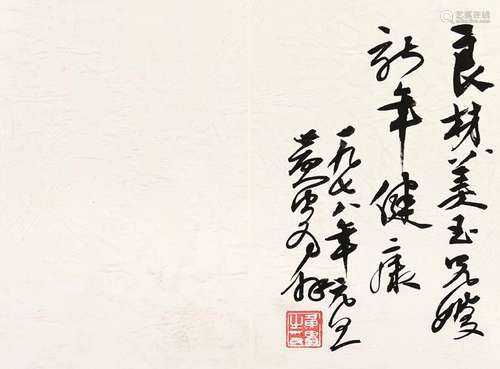 良材美玉兄嫂
新年健康
一九七八年元旦
黄胄
艺狐在线